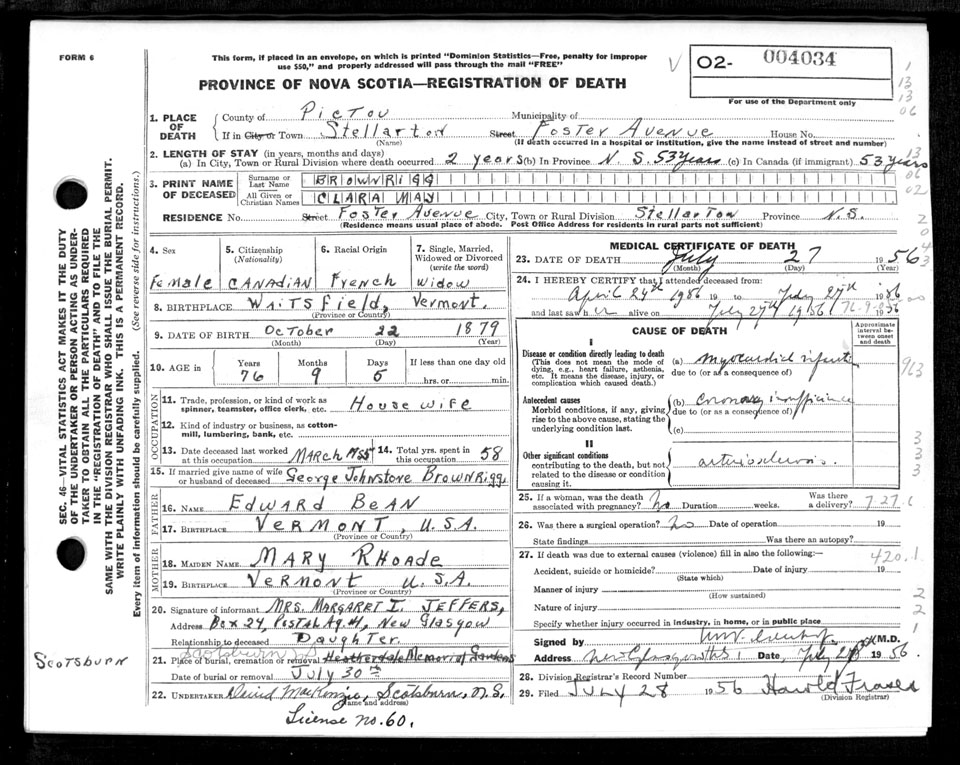 FORM 6
This form, if placed in an envelope, on which is printed "Dominion Statistics—Free, penalty for improper
use $50," and properly addressed will pass through the mail "FREE"
PROVINCE OF NOVA SCOTIA—REGISTRATION OF DEATH
V 02- 004034
For use of the Department only
1
13
13
06
13
06
02
2
0
43
SEC. 46—VITAL STATISTICS ACT MAKES IT THE DUTY
OF THE UNDERTAKER OR PERSON ACTING AS UNDER-
TAKER TO OBTAIN ALL THE PARTICULARS REQUIRED
IN THE "REGISTRATION OF DEATH" AND TO FILE THE
SAME WITH THE DIVISION REGISTRAR WHO SHALL ISSUE THE BURIAL PERMIT.
WRITE PLAINLY WITH UNFADING INK. THIS IS A PERMANENT RECORD.
Every item of information should be carefully supplied. (See reverse side for instructions.)
1. PLACE OF DEATH
County of Pictou Municipality of
If in City or Town Stellarton Street Foster Avenue House No.
(Name) (If death occurred in a hospital or institution, give the name instead of street and number)
2. LENGTH OF STAY (in years, months and days)
(a) In City, Town or Rural Division where death occurred 2 years (b) In Province N.S. 53 Years (c) In Canada (if immigrant) 53 Years
3. PRINT NAME OF DECEASED
Surname or Last Name BROWNRIGG
All Given or Christian Names CLARA MAY
RESIDENCE No. Street Foster Avenue City, Town or Rural Division Stellarton Province N.S.
(Residence means usual place of abode. Post Office Address for residents in rural parts not sufficient)
4. Sex Female
5. Citizenship (Nationality) CANADIAN
6. Racial Origin French
7. Single, Married, Widowed or Divorced (write the word) Widow
8. BIRTHPLACE Waitsfield, Vermont.
(Province or Country)
9. DATE OF BIRTH October 22 1879
(Month) (Day) (Year)
10. AGE in Years 76 Months 9 Days 5 If less than one day old hrs. or min.
OCCUPATION
11. Trade, profession, or kind of work as spinner, teamster, office clerk, etc. House Wife
12. Kind of industry or business, as cotton-mill, lumbering, bank, etc.
13. Date deceased last worked at this occupation March 1955 14. Total yrs. spent in this occupation 58
15. If married give name of wife or husband of deceased George Johnstone Brownrigg
FATHER
16. NAME Edward Bean
17. BIRTHPLACE Vermont, U.S.A.
(Province or Country)
MOTHER
18. MAIDEN NAME Mary Rhoade
19. BIRTHPLACE Vermont U.S.A.
(Province or Country)
20. Signature of informant Mrs. Margaret I. Jeffers,
Address Box 24, Postal Ag. #1, New Glasgow
Relationship to deceased Daughter.
Scotsburn N.S
SCOTSBURN
21. Place of burial, cremation or removal Heatherdale Memorial Gardens
Date of burial or removal July 30th
22. UNDERTAKER David MacKenzie, Scotsburn, N.S.
(Name and address)
License no. 60.
MEDICAL CERTIFICATE OF DEATH
23. DATE OF DEATH July 27 1956
(Month) (Day) (Year)
24. I HEREBY CERTIFY that I attended deceased from
April 24th 1956 19 to July 27th 1956
and last saw her alive on July 27th 1956 1956
CAUSE OF DEATH
Approximate interval between onset and death
I
Disease or condition directly leading to death
(This does not mean the mode of dying, e.g., heart failure, asthenia, etc. It means the disease, injury, or complication which caused death.)
(a) myocardial infarct
due to (or as a consequence of)
Antecedent causes
Morbid conditions, if any, giving rise to the above cause, stating the underlying condition last.
(b) coronary insufficiency
due to (or as a consequence of)
(c)
II
Other significant conditions
contributing to the death, but not related to the disease or condition causing it.
arteriosclerosis.
913
3
3
3
25. If a woman, was the death associated with pregnancy? no Duration weeks. Was there a delivery?
727.6
26. Was there a surgical operation? no Date of operation 19
State findings Was there an autopsy?
27. If death was due to external causes (violence) fill in also the following:
420.1
Accident, suicide or homicide? Date of injury 19
(State which)
Manner of injury
(How sustained)
2
Nature of injury
2
Specify whether injury occurred in industry, in home, or in public place
1
Signed by M.D.
Address New Glasgow N.S. Date, July 28 1956.
28. Division Registrar's Record Number
29. Filed July 28 1956 Harold Fraser
(Division Registrar)